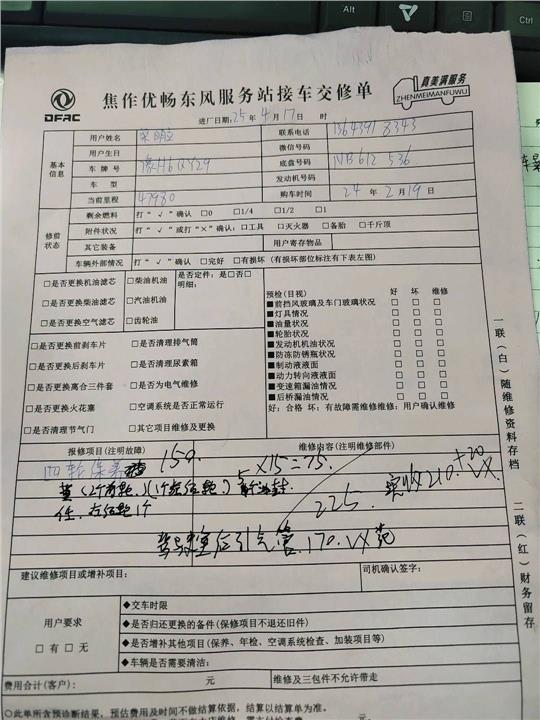 Alt
Ctrl
DFAC
焦作优畅东风服务站接车交修单
真美满服务
ZHENMEIMANFUWU
进厂日期:25年4月17日 时
基本信息
用户姓名
联系电话
用户生日
微信号码
车牌号 豫H6QY29
底盘号码 NB612536
车型
发动机号码
当前里程 47980
购车时间 24年2月19日
修前状态
剩余燃料 打“√”确认 □0 □1/4 □1/2 □1
附件状况 打“√”或打“×”确认:□工具 □灭火器 □备胎 □千斤顶
其它装备 用户寄存物品
车辆外部情况 打“√”确认 □完好 □有损坏(有损坏部位标注有下表左图)
□是否更换机油滤芯 □柴油机油 是否定件:是□否□
明细:
□是否更换柴油滤芯 □汽油机油
□是否更换空气滤芯 □齿轮油
□是否更换前刹车片 □是否清理排气筒
□是否更换后刹车片 □是否清理尿素箱
□是否更换离合三件套 □是否为电气维修
□是否更换火花塞 □空调系统是否正常运行
□是否清理节气门 □其它项目维修及更换
预检(目视) 好 坏 维修
■前挡风玻璃及车门玻璃状况 □ □ □
■灯具情况 □ □ □
■油量状况 □ □ □
■轮胎状况 □ □ □
■发动机机油状况 □ □ □
■防冻防锈瓶状况 □ □ □
■制动液液面 □ □ □
■动力转向液液面 □ □ □
■变速箱漏油情况 □ □ □
■后桥漏油情况 □ □ □
好:合格 坏:有故障需维修维修:用户确认维修
报修项目(注明故障) 维修内容(注明维修部件)
四轮保养 150. 5×15=75.
225. 实收210.+20
170.
建议维修项目或增补项目:
司机确认签字:
用户要求
□有□无
◆交车时限
◆是否归还更换的备件(保修项目不退还旧件)
◆是否增补其他项目(保养、年检、空调系统检查、加装项目等)
◆车辆是否需要清洁:
费用合计(客户): 元 元 维修及三包件不允许带走
◇此单所含预诊断结果,预估费用及时间不做结算依据,结算以结算单为准。
一联(白)随维修资料存档
二联(红)财务留存